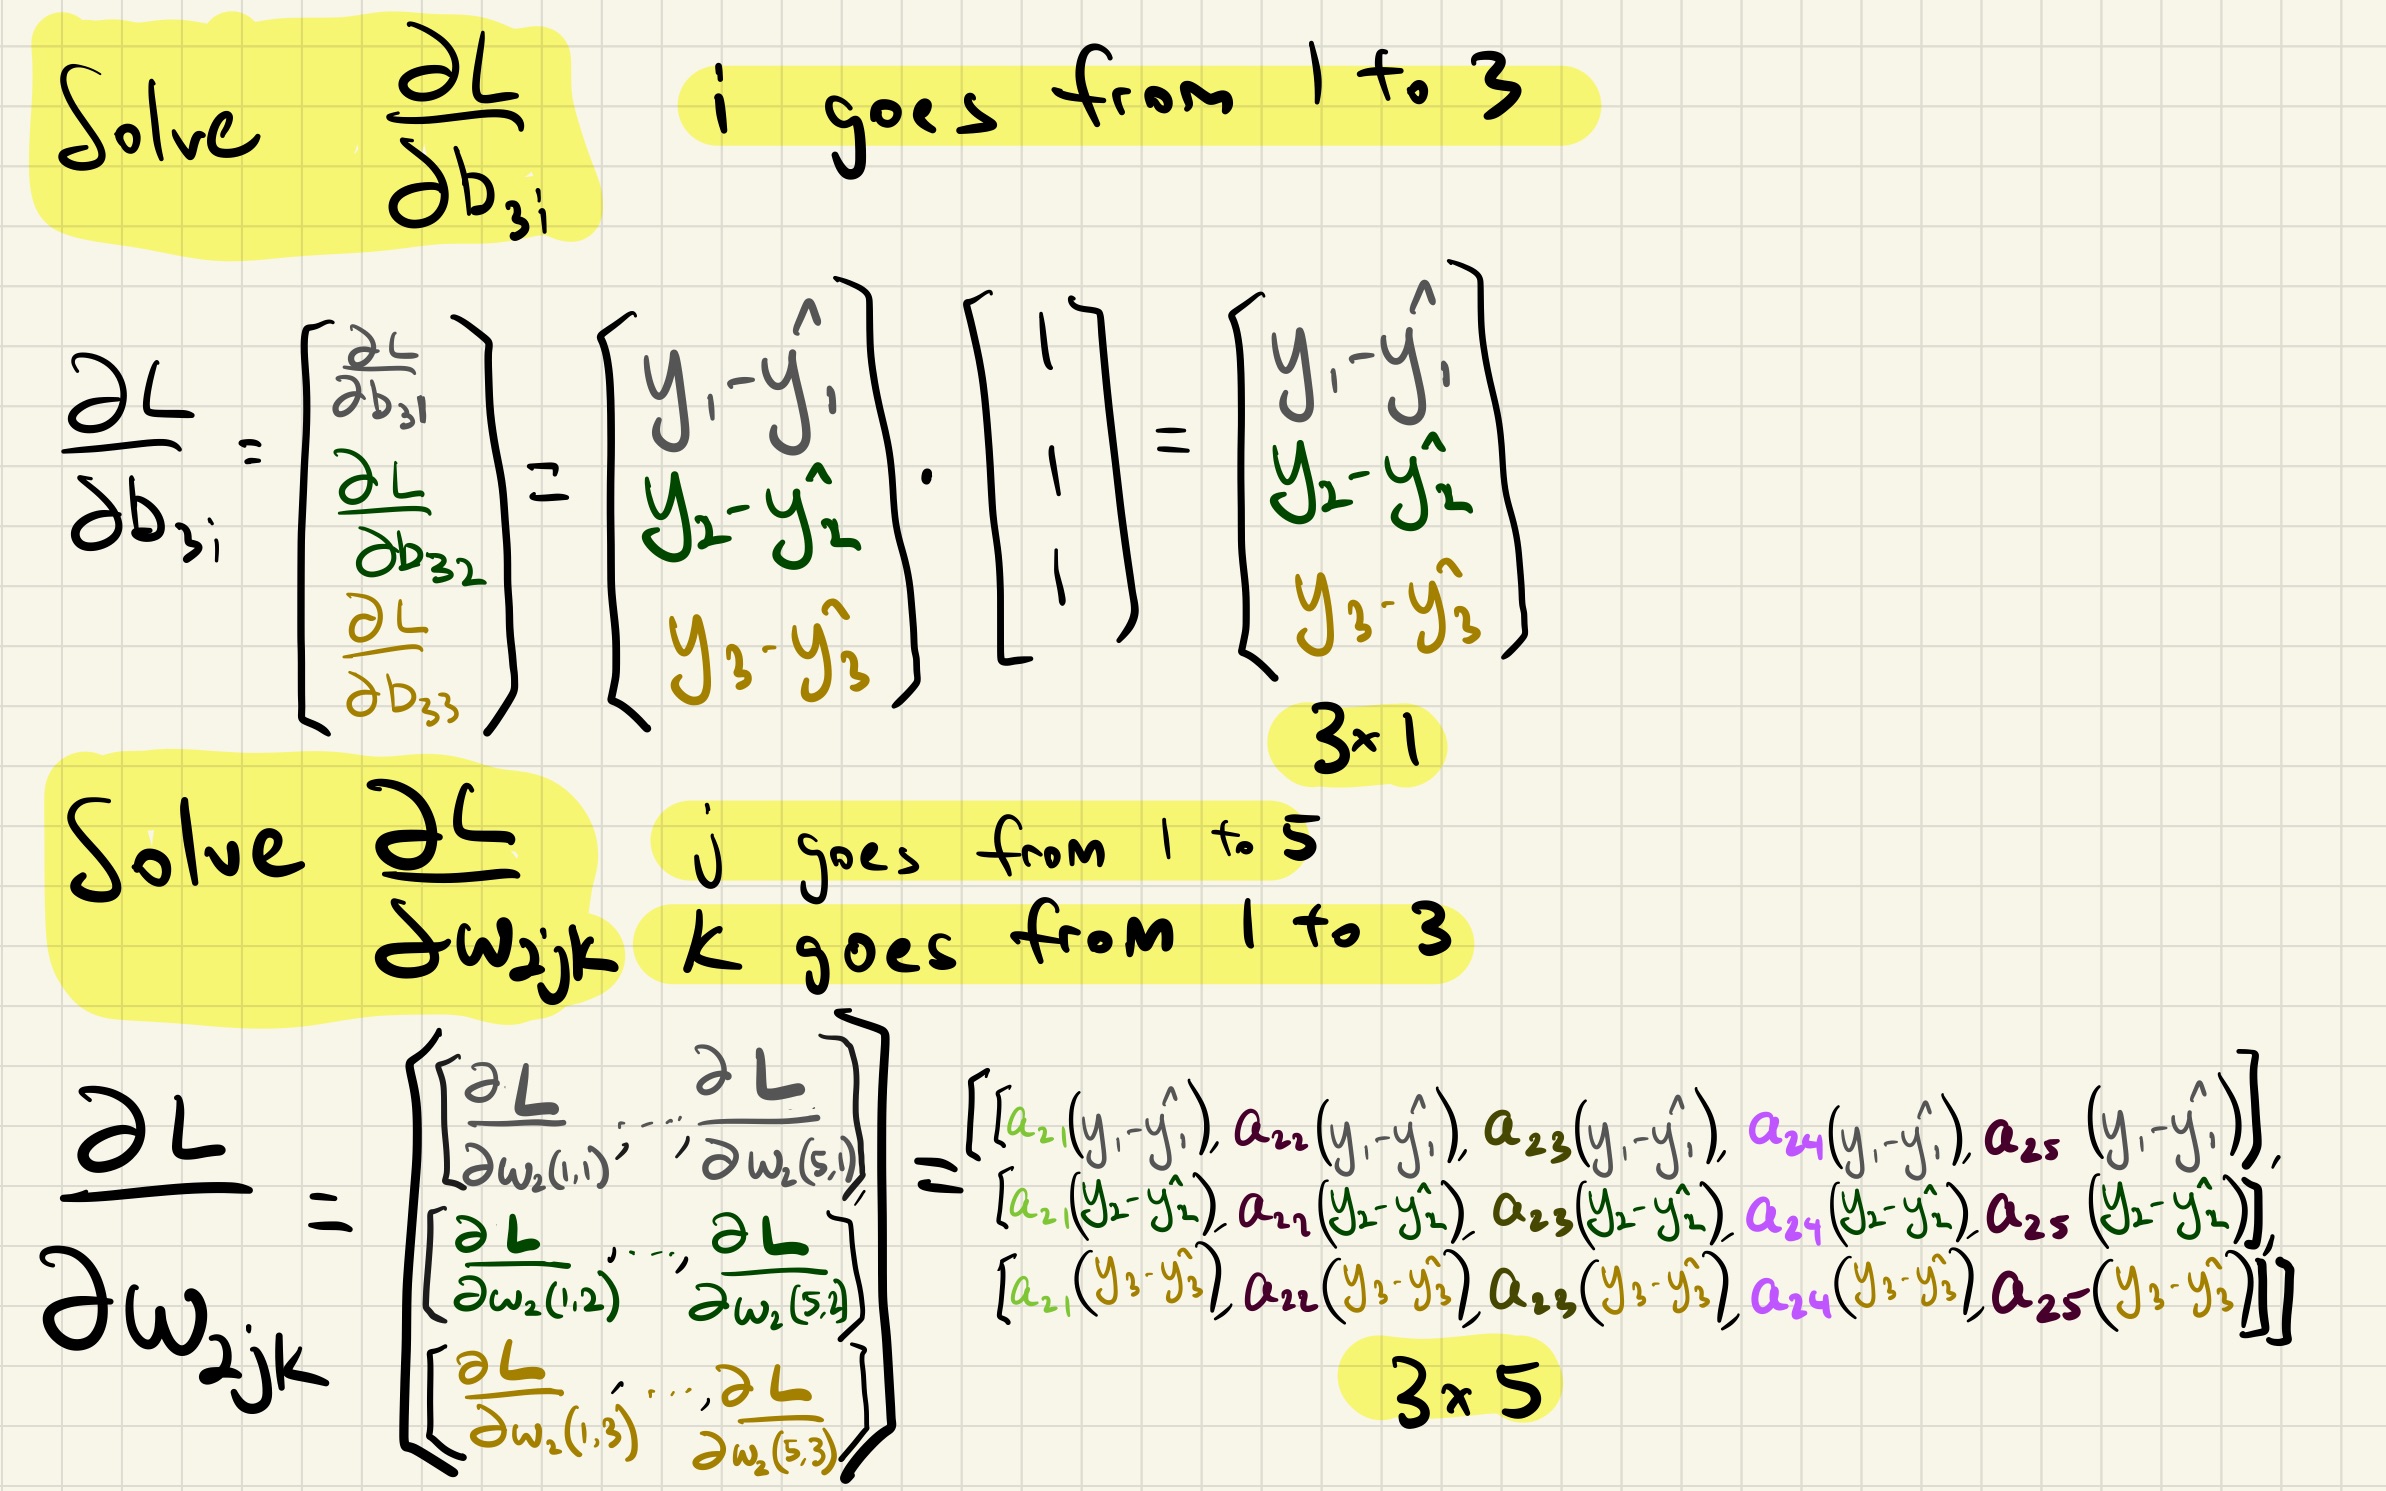 Solve ∂L/∂b₃ᵢ i goes from 1 to 3
∂L/∂b₃ᵢ = [∂L/∂b₃₁ ∂L/∂b₃₂ ∂L/∂b₃₃] = [y₁-ŷ₁ y₂-ŷ₂ y₃-ŷ₃] · [1 1 1] = [y₁-ŷ₁ y₂-ŷ₂ y₃-ŷ₃]
3×1
Solve ∂L/∂w₂jk j goes from 1 to 5
k goes from 1 to 3
∂L/∂w₂jk = [[∂L/∂w₂(1,1), ...., ∂L/∂w₂(5,1)], [∂L/∂w₂(1,2), ...., ∂L/∂w₂(5,2)] [∂L/∂w₂(1,3), ...., ∂L/∂w₂(5,3)]]
= [[a₂₁(y₁-ŷ₁), a₂₂(y₁-ŷ₁), a₂₃(y₁-ŷ₁), a₂₄(y₁-ŷ₁), a₂₅(y₁-ŷ₁)],
[a₂₁(y₂-ŷ₂), a₂₂(y₂-ŷ₂), a₂₃(y₂-ŷ₂), a₂₄(y₂-ŷ₂), a₂₅(y₂-ŷ₂)],
[a₂₁(y₃-ŷ₃), a₂₂(y₃-ŷ₃), a₂₃(y₃-ŷ₃), a₂₄(y₃-ŷ₃), a₂₅(y₃-ŷ₃)]]
3×5